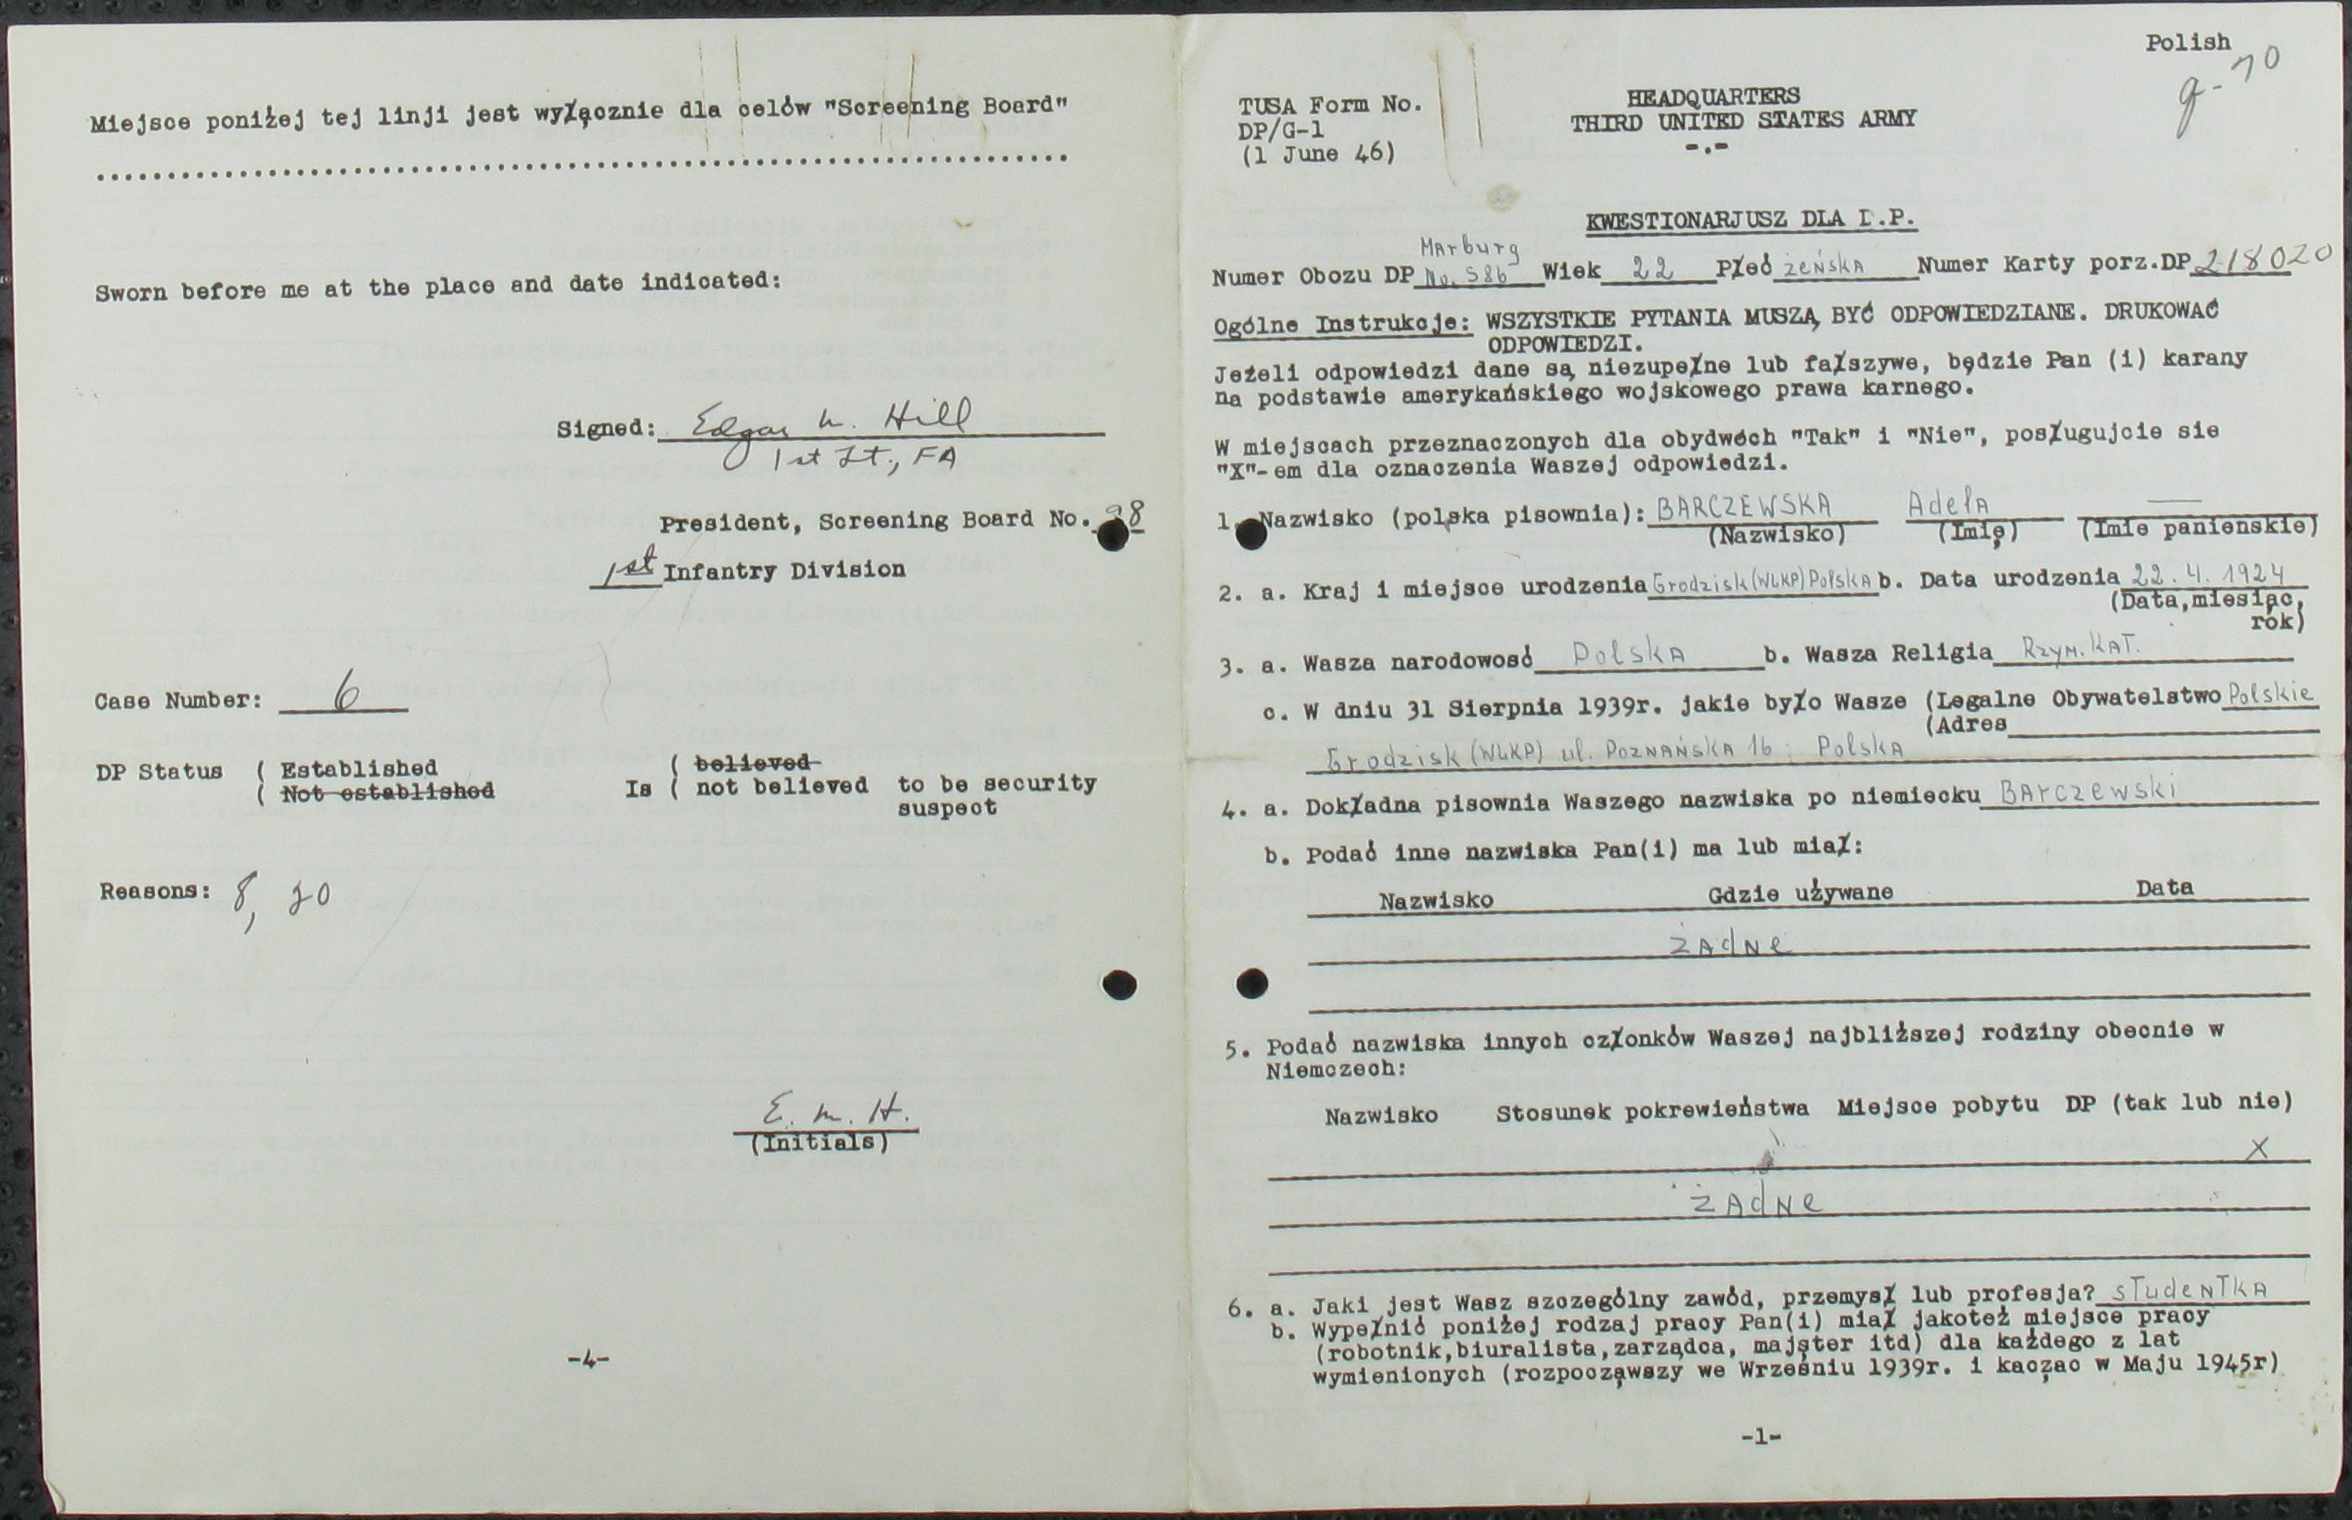 Miejsce poniżej tej linji jest wyłącznie dla celów "Screening Board"
Sworn before me at the place and date indicated:
Signed: Edgar M. Hill
1st Lt., FA
President, Screening Board No. 8
1st Infantry Division
Case Number: 6
DP Status ( Established
( Not established
Is ( believed
( not believed to be security
suspect
Reasons: 8, 20
E. M. H.
(Initials)
-4-
Polish
TUSA Form No.
DP/G-1
(1 June 46)
HEADQUARTERS
THIRD UNITED STATES ARMY
-.-
KWESTIONARJUSZ DLA D.P.
Marburg
Numer Obozu DP No. 586 Wiek 22 Płeć żeńska Numer Karty porz.DP 218020
Ogólne Instrukcje: WSZYSTKIE PYTANIA MUSZĄ BYĆ ODPOWIEDZIANE. DRUKOWAĆ
ODPOWIEDZI.
Jeżeli odpowiedzi dane są niezupełne lub fałszywe, będzie Pan (i) karany
na podstawie amerykańskiego wojskowego prawa karnego.
W miejscach przeznaczonych dla obydwóch "Tak" i "Nie", posługujcie sie
"X"-em dla oznaczenia Waszej odpowiedzi.
1. Nazwisko (polska pisownia): BARCZEWSKA Adela —
(Nazwisko) (Imię) (Imie panienskie)
2. a. Kraj i miejsce urodzenia Grodzisk (WLKP) Polska b. Data urodzenia 22. 4. 1924
(Data,miesiąc,
rok)
3. a. Wasza narodowosć Polska b. Wasza Religia Rzym. KAT.
c. W dniu 31 Sierpnia 1939r. jakie było Wasze (Legalne Obywatelstwo Polskie
(Adres
Grodzisk (WLKP) ul. POZNAŃSKA 16 ; Polska
4. a. Dokładna pisownia Waszego nazwiska po niemiecku Barczewski
b. Podać inne nazwiska Pan(i) ma lub miał:
Nazwisko Gdzie używane Data
żadne
5. Podać nazwiska innych członków Waszej najbliższej rodziny obecnie w
Niemczech:
Nazwisko Stosunek pokrewieństwa Miejsce pobytu DP (tak lub nie)
X
żadne
6. a. Jaki jest Wasz szczególny zawód, przemysł lub profesja? studentka
b. Wypełnić poniżej rodzaj pracy Pan(i) miał jakoteż miejsce pracy
(robotnik,biuralista,zarządca, majster itd) dla każdego z lat
wymienionych (rozpocząwszy we Wrześniu 1939r. i kaczac w Maju 1945r)
-1-